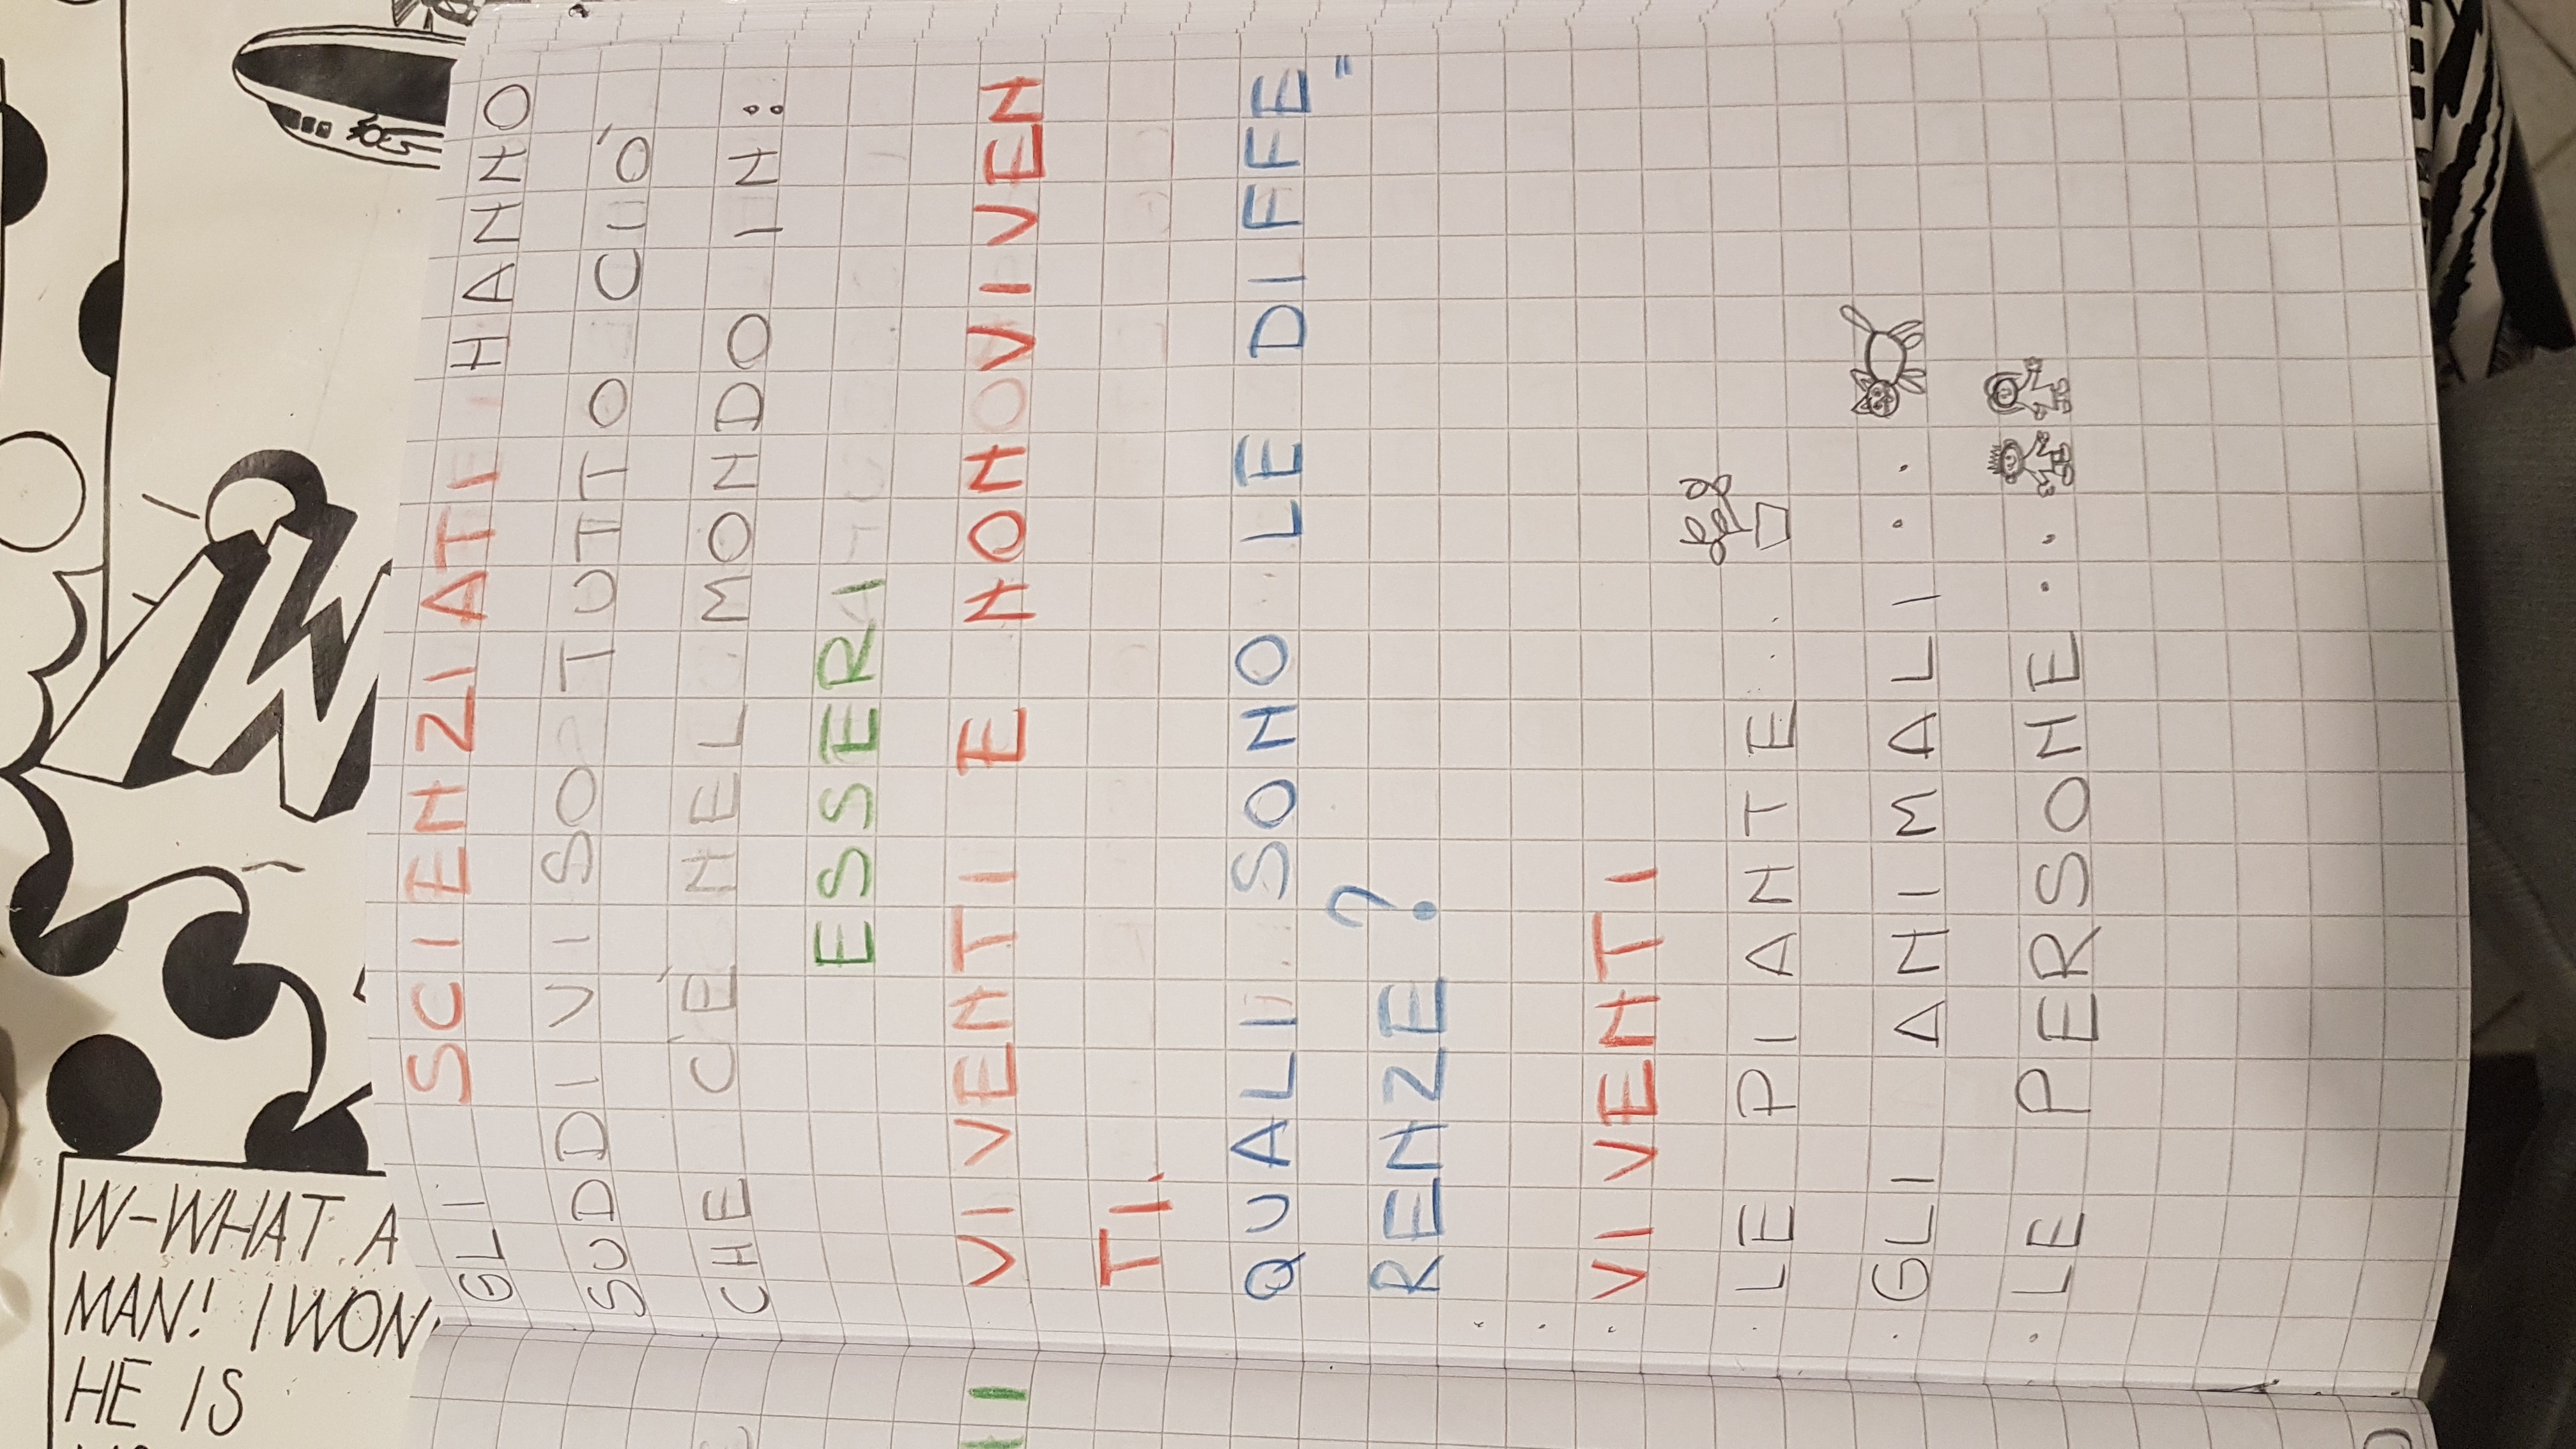 W-WHAT A
MAN! I WON
HE IS
GLI SCIENZIATI HANNO
SUDDIVISO TUTTO CIÒ
CHE C'È NEL MONDO IN:
ESSERI
VIVENTI E NON VIVEN
TI.
QUALI SONO LE DIFFE=
RENZE?
VIVENTI
LE PIANTE..
GLI ANIMALI..
LE PERSONE..